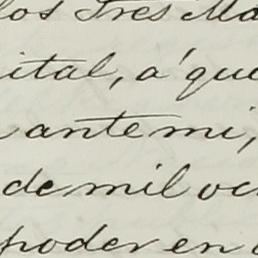 los Tres Ma
ital, á que
ante mi,
de mil oc
poder en